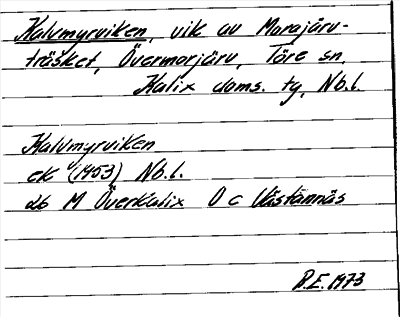 Kalvmyrviken, vik av Morajärv-
träsket, Övermorjärv, Töre sn,
Kalix doms. tg, Nb.l.
Kalvmyrviken
ek (1953) Nb.l.
db M Överkalix O c Västannäs
R.E. 1973